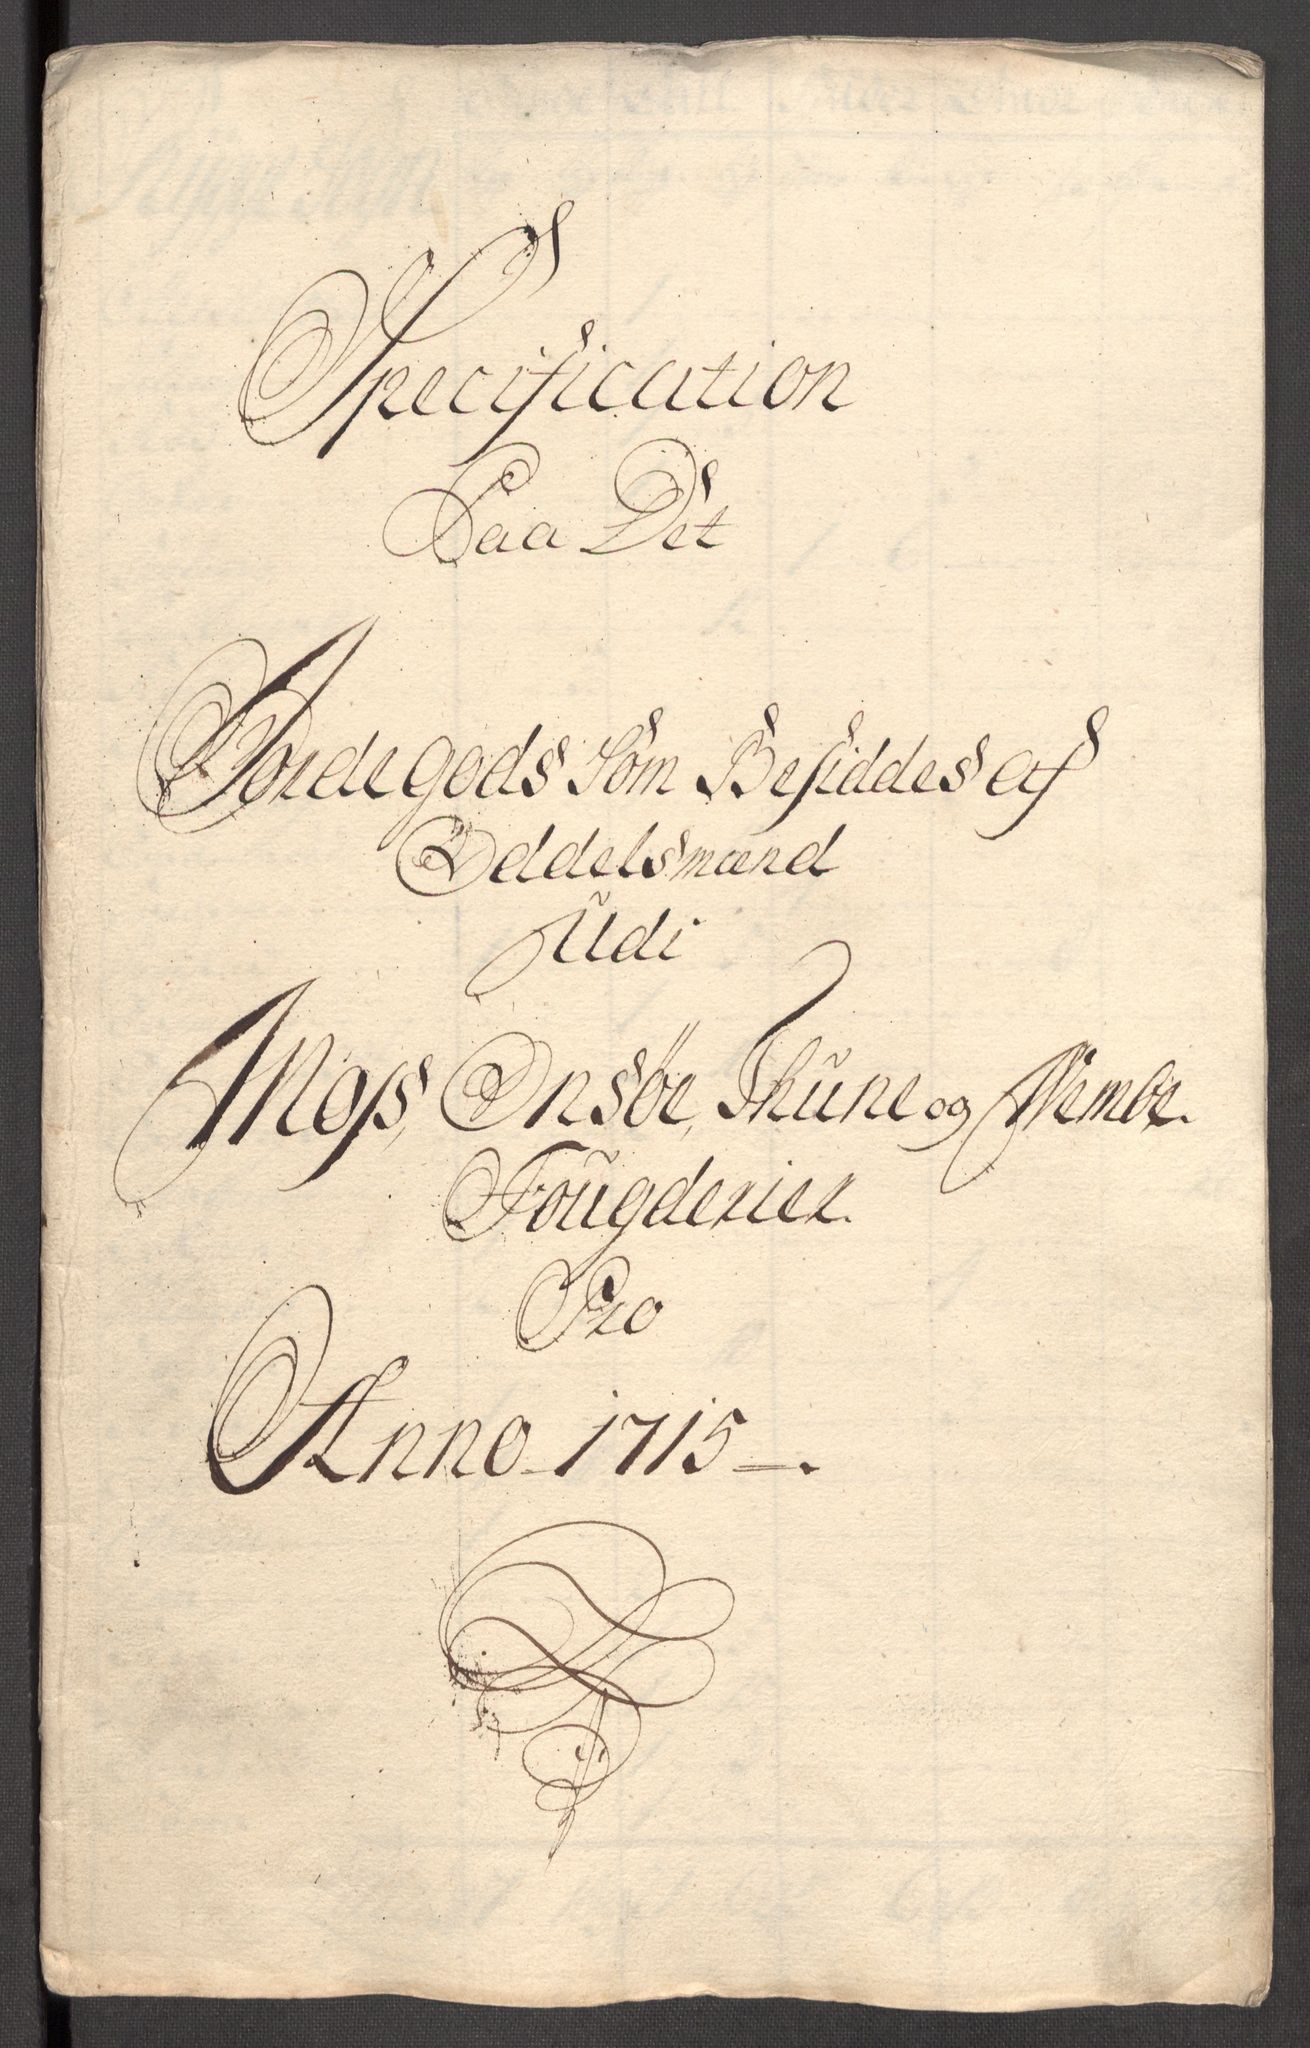 Specification
Paa Det
Jordegods Som Besiddes af
Oddelsmænd
Udi
Moss, Onsøe, Thune og Wembe.
Fougderier.
Pro
Anno 1715